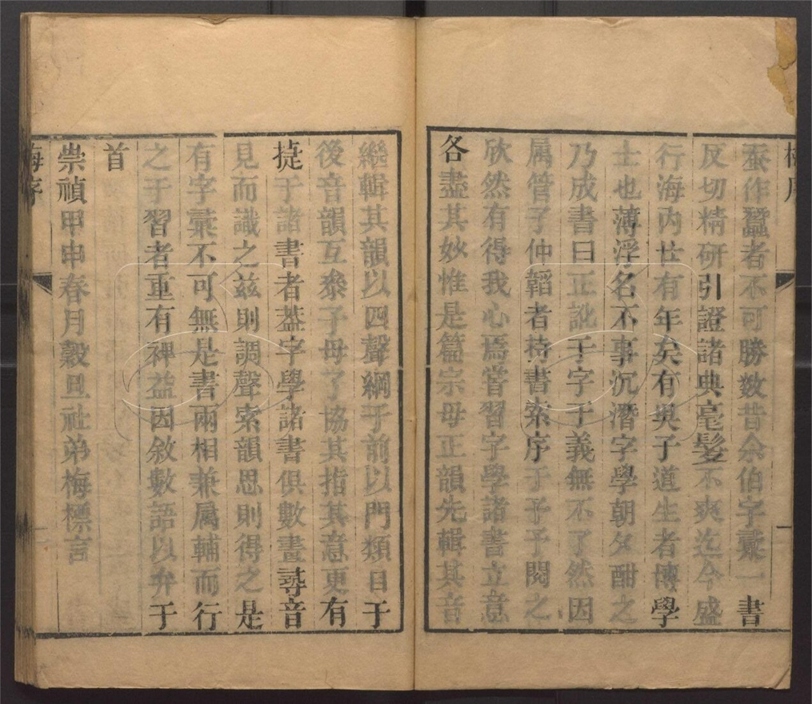 梅序
蚕作蠶者不可勝数昔余伯字彚一書
反切精研引證諸典毫髮不爽迄今盛
行海內廿有年矣有吳子道生者博學
士也薄浮名不事沉潛字學朝夕酣之
乃成書曰正訛于字于義無不了然因
属管子仲韜者持書索序于予予閱之
欣然有得我心焉嘗習字學諸書立意
各盡其妙惟是篇宗毋正韻先輯其音
繼輯其韻以四聲綱于前以門類目于
後音韻互叅子母了協其指其意更有
㨗于諸書者葢字學諸書俱數畫尋音
見而識之兹則調聲索韻思則得之是
有字彚不可無是書兩相兼属輔而行
之于習者重有裨益因敘數語以弁于
首
崇禎甲申春月穀旦社弟梅㯹言
梅序